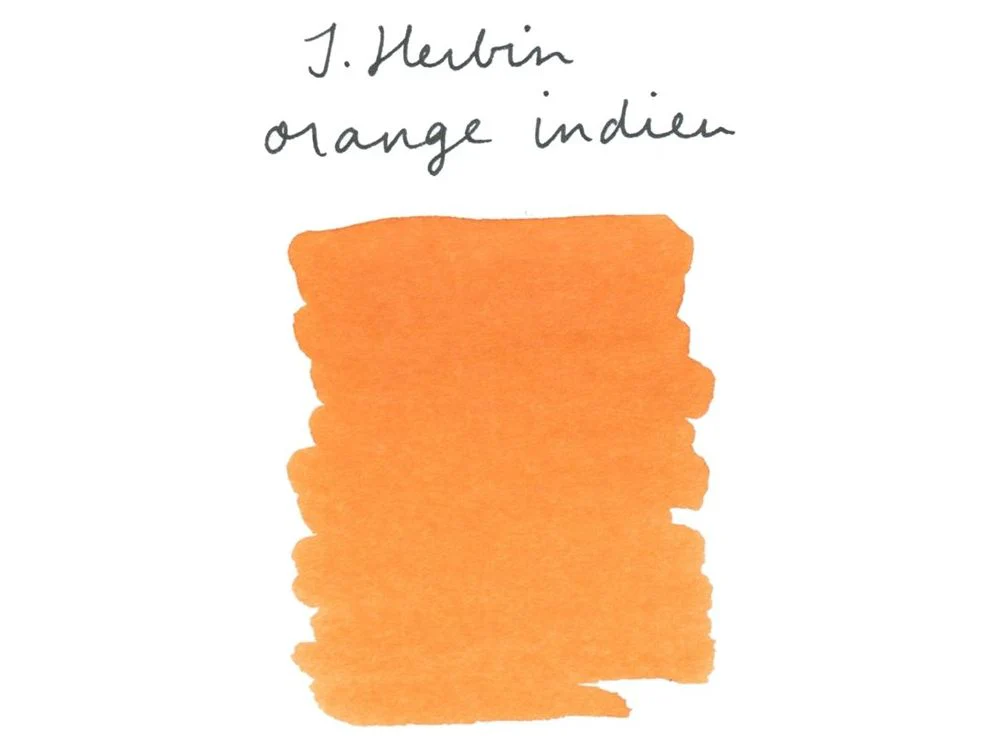 J. Herbin
orange indien